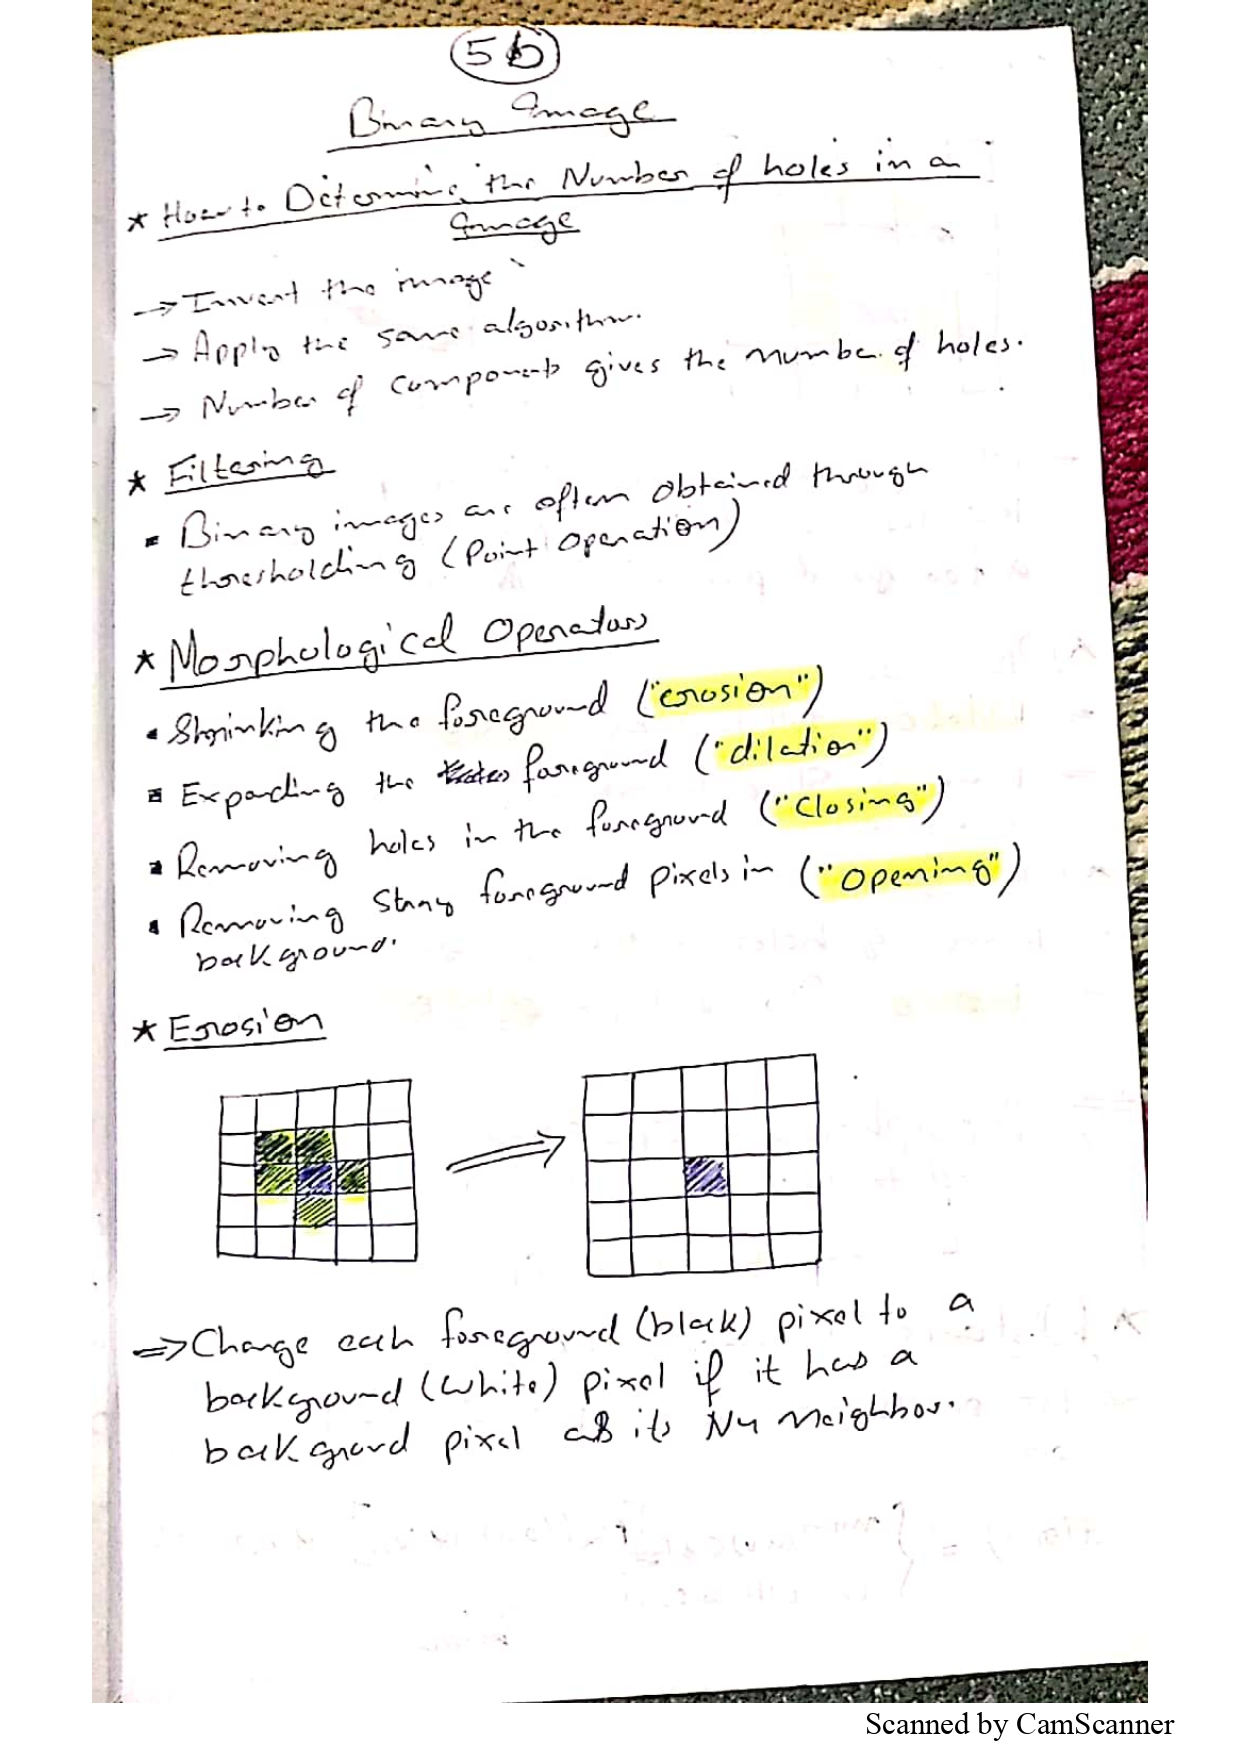 5b
Binary Image
* How to Determine the Number of holes in a
Image
→ Invert the image
→ Apply the same algorithm.
→ Number of Components gives the number of holes.
* Filtering
▪ Binary images are often obtained through
thresholding (Point Operation)
* Morphological Operators
▪ Shrinking the foreground ("erosion")
▪ Expanding the foreground ("dilation")
▪ Removing holes in the foreground ("Closing")
▪ Removing Stray foreground pixels in ("Opening")
background.
* Erosion
⇒ Change each foreground (black) pixel to a
background (white) pixel if it has a
background pixel as its N4 neighbor.
Scanned by CamScanner